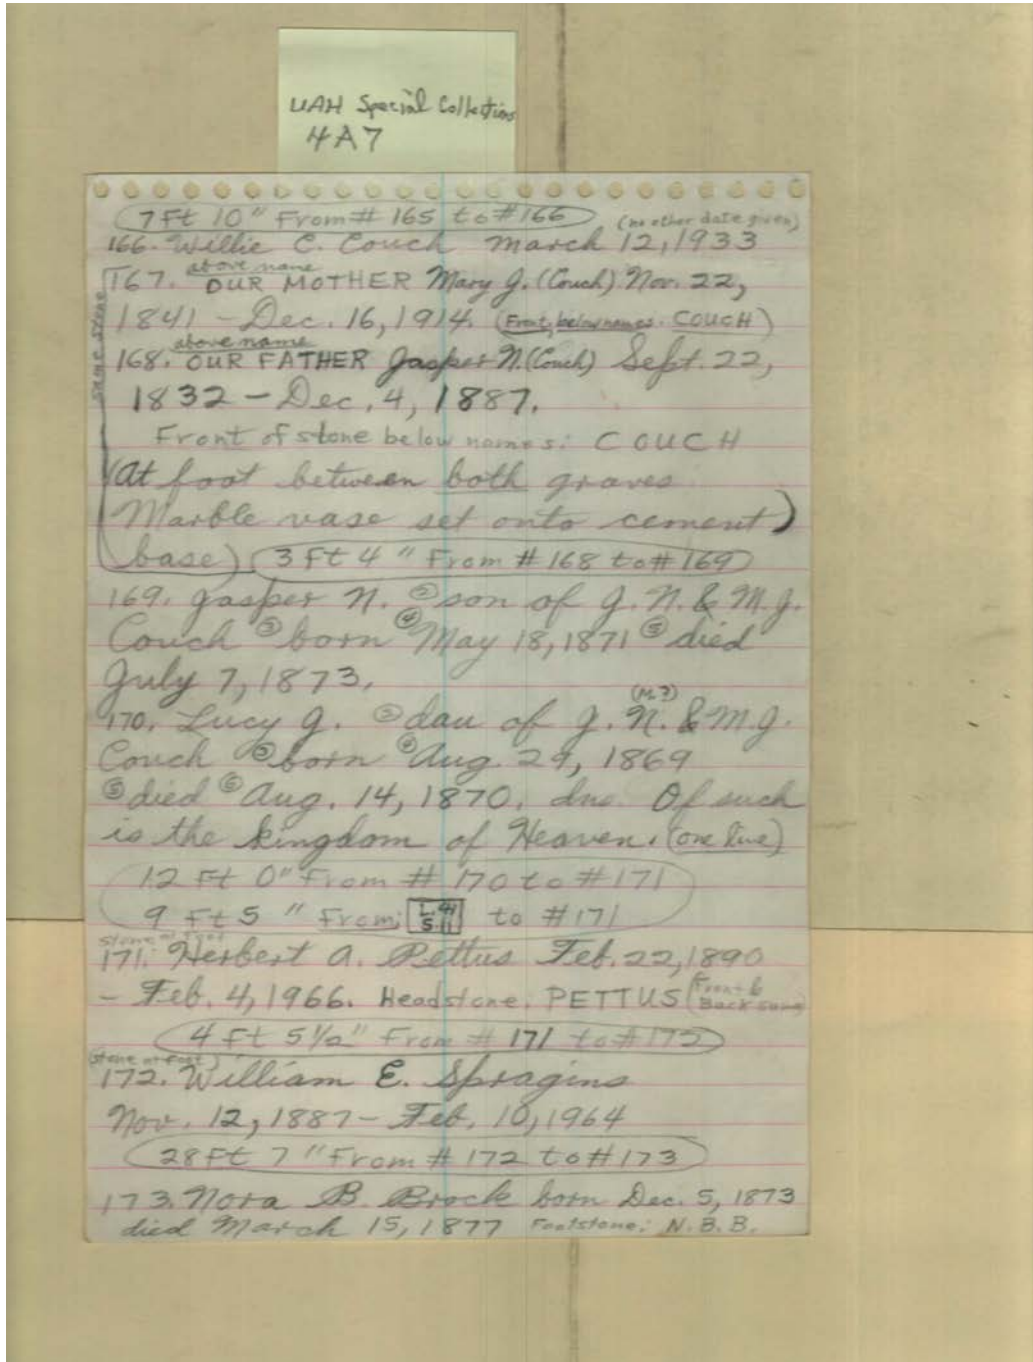 UAH Special Collections
4A7
7 Ft 10" From # 165 to # 166 (no other date given)
166. Willie C. Couch March 12, 1933
above name
167. OUR MOTHER Mary J. (Couch) Nov. 22,
1841 - Dec. 16, 1914. (Front, below names. COUCH)
above name
168. OUR FATHER Jasper N. (Couch) Sept. 22,
1832 - Dec. 4, 1887.
same stone
Front of stone below names: COUCH
(At foot between both graves
Marble vase set onto cement)
base) 3 Ft 4" From # 168 to # 169
169. Jasper N. ② son of J. N. & M. J.
Couch ③ born ④ May 18, 1871 ⑤ died
July 7, 1873.
(M.?)
170. Lucy J. ② dau of J. N. & M. J.
Couch ③ born ④ Aug. 29, 1869
⑤ died ⑥ Aug. 14, 1870. dns. Of such
is the kingdom of Heaven. (one line)
12 Ft 0" From # 170 to # 171
9 Ft 5" From: to # 171
stone at foot
171. Herbert A. Pettus Feb. 22, 1890
- Feb. 4, 1966. Headstone. PETTUS (Front & Back same)
4 Ft 5 1/2" From # 171 to # 172
(stone at foot)
172. William E. Spragins
Nov. 12, 1887 - Feb. 10, 1964
28 Ft 7" From # 172 to # 173
173. Nora B. Brock born Dec. 5, 1873
died March 15, 1877 Footstone: N. B. B.